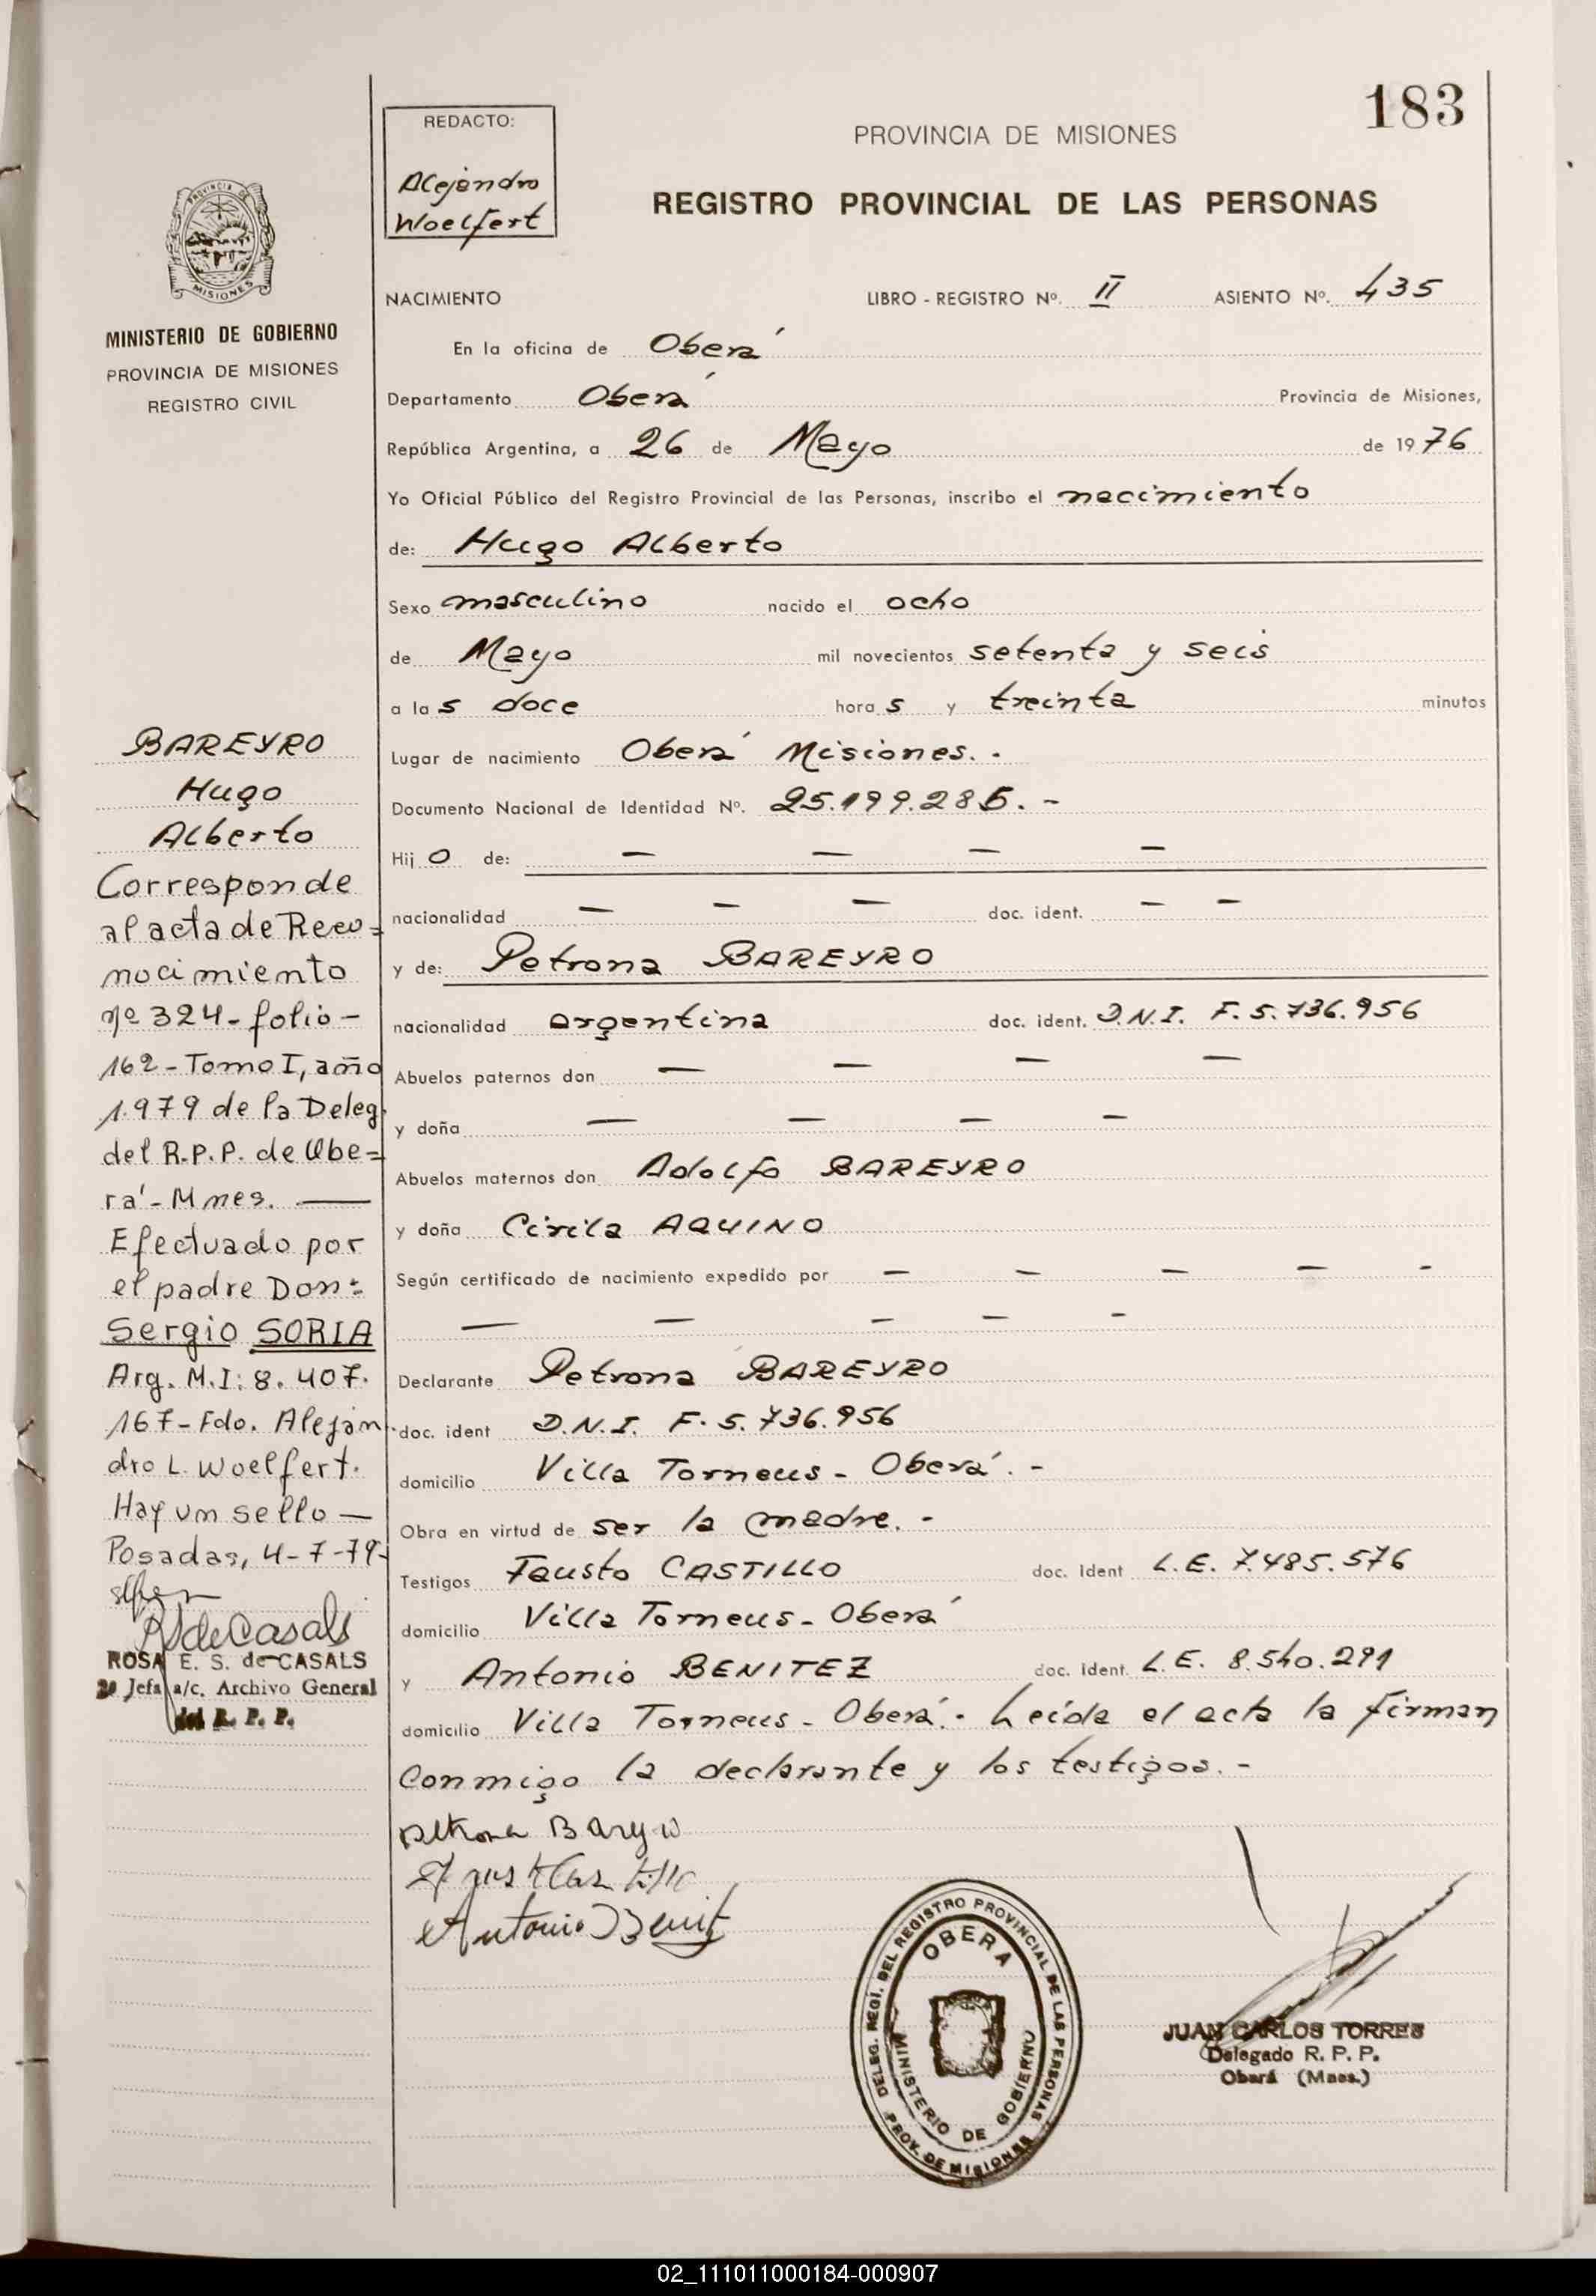 183
REDACTO:
Alejandro
Woelfert
PROVINCIA DE MISIONES
REGISTRO PROVINCIAL DE LAS PERSONAS
PROVINCIA DE
MISIONES
MINISTERIO DE GOBIERNO
PROVINCIA DE MISIONES
REGISTRO CIVIL
NACIMIENTO LIBRO - REGISTRO Nº. II ASIENTO Nº. 435
En la oficina de Oberá
Departamento Oberá Provincia de Misiones,
República Argentina, a 26 de Mayo de 1976
Yo Oficial Público del Registro Provincial de las Personas, inscribo el nacimiento
de: Hugo Alberto
Sexo masculino nacido el ocho
de Mayo mil novecientos setenta y seis
a las doce horas y treinta minutos
Lugar de nacimiento Oberá Misiones. -
Documento Nacional de Identidad Nº. 25.199.285. -
Hijo de: — — — —
nacionalidad — — — doc. ident. — —
y de: Petrona BAREYRO
nacionalidad argentina doc. ident. D.N.I. F. 5.736.956
Abuelos paternos don — — — —
y doña — — — —
Abuelos maternos don Adolfo BAREYRO
y doña Cirila AQUINO
Según certificado de nacimiento expedido por — — — — -
— — — — -
Declarante Petrona BAREYRO
doc. ident D.N.I. F. 5.736.956
domicilio Villa Torneus - Oberá. -
Obra en virtud de ser la madre. -
Testigos Fausto CASTILLO doc. ident L.E. 7.485.576
domicilio Villa Torneus - Oberá
y Antonio BENITEZ doc. ident. L.E. 8.540.291
domicilio Villa Torneus - Oberá. - Leída el acta la firman
conmigo la declarante y los testigos. -
BAREYRO
Hugo
Alberto
Corresponde
al acta de Reco=
nocimiento
nº 324 - folio -
162 - Tomo I, año
1.979 de la Deleg.
del R.P.P. de Obe=
rá - Mnes. —
Efectuado por
el padre Don:
Sergio SORIA
Arg. M.I: 8.407.
167 - Fdo. Alejan
dro L. Woelfert.
Hay un sello —
Posadas, 4-7-79-
RSdeCasals
ROSA E. S. de CASALS
2º Jefa a/c. Archivo General
del R. P. P.
Petrona Bareyro
Faustо Castillo
Antonio Benitez
DELEG. REGI. DEL REGISTRO PROVINCIAL DE LAS PERSONAS
PROV. DE MISIONES
OBERA
MINISTERIO DE GOBIERNO
JUAN CARLOS TORRES
Delegado R. P. P.
Oberá (Mnes.)
02_111011000184-000907